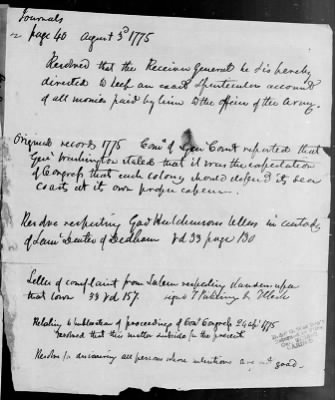 Journals
page 40 August 3d 1775
Resolved that the Receiver General be & is hereby
directed to keep an exact & particular account
of all monies paid by him to the officers of the Army.
Original records 1775 Com of Gen Court reported that
Genl Washington stated that it was the expectation
of Congress that each colony should defend its sea
coast at it own proper expense.
Resolve respecting Gov Hutchinsons letters in custody
of Dedham Vol 33 page 130
Letter of complaint from Salem respecting
that town 33 Vol 157.
Relating to of proceedings of Congress 24 1775
Resolved that this matter subside for the present
Resolve for all persons whose intentions are not good.